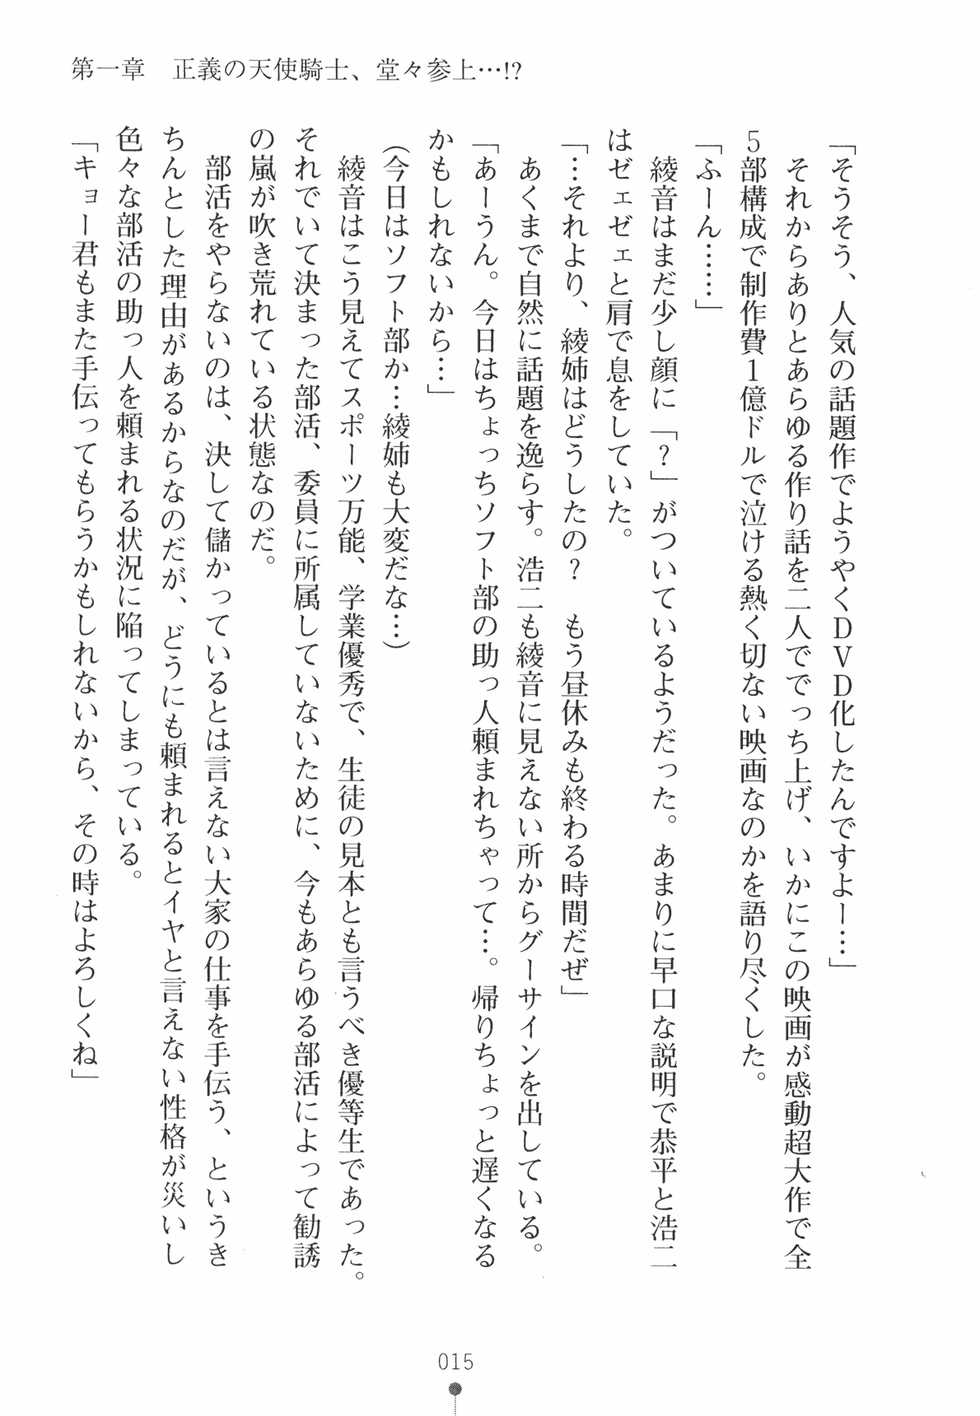 第一章　正義の天使騎士、堂々参上…!?
「そうそう、人気の話題作でようやくDVD化したんですよー…」
　それからありとあらゆる作り話を二人ででっち上げ、いかにこの映画が感動超大作で全
5部構成で制作費1億ドルで泣ける熱く切ない映画なのかを語り尽くした。
「ふーん……」
　綾音はまだ少し顔に「？」がついているようだった。あまりに早口な説明で恭平と浩二
はゼェゼェと肩で息をしていた。
「…それより、綾姉はどうしたの？　もう昼休みも終わる時間だぜ」
　あくまで自然に話題を逸らす。浩二も綾音に見えない所からグーサインを出している。
「あーうん。今日はちょっちソフト部の助っ人頼まれちゃって…。帰りちょっと遅くなる
かもしれないから…」
（今日はソフト部か…綾姉も大変だな…）
　綾音はこう見えてスポーツ万能、学業優秀で、生徒の見本とも言うべき優等生であった。
それでいて決まった部活、委員に所属していないために、今もあらゆる部活によって勧誘
の嵐が吹き荒れている状態なのだ。
　部活をやらないのは、決して儲かっているとは言えない大家の仕事を手伝う、というき
ちんとした理由があるからなのだが、どうにも頼まれるとイヤと言えない性格が災いし
色々な部活の助っ人を頼まれる状況に陥ってしまっている。
「キョー君もまた手伝ってもらうかもしれないから、その時はよろしくね」
015